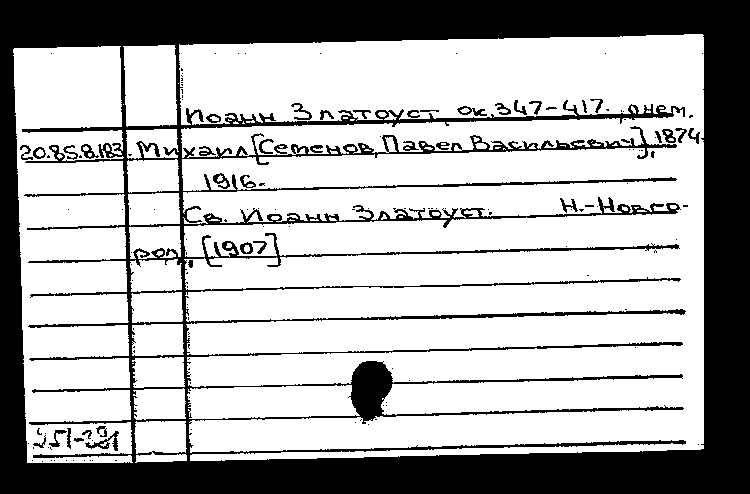 Иоанн Златоуст, ок. 347-417.
20.85.8.183. Михаил [Семенов, Павел Васильевич], 1874-
1916.
Св. Иоанн Златоуст. Н.-Новго-
род, [1907]